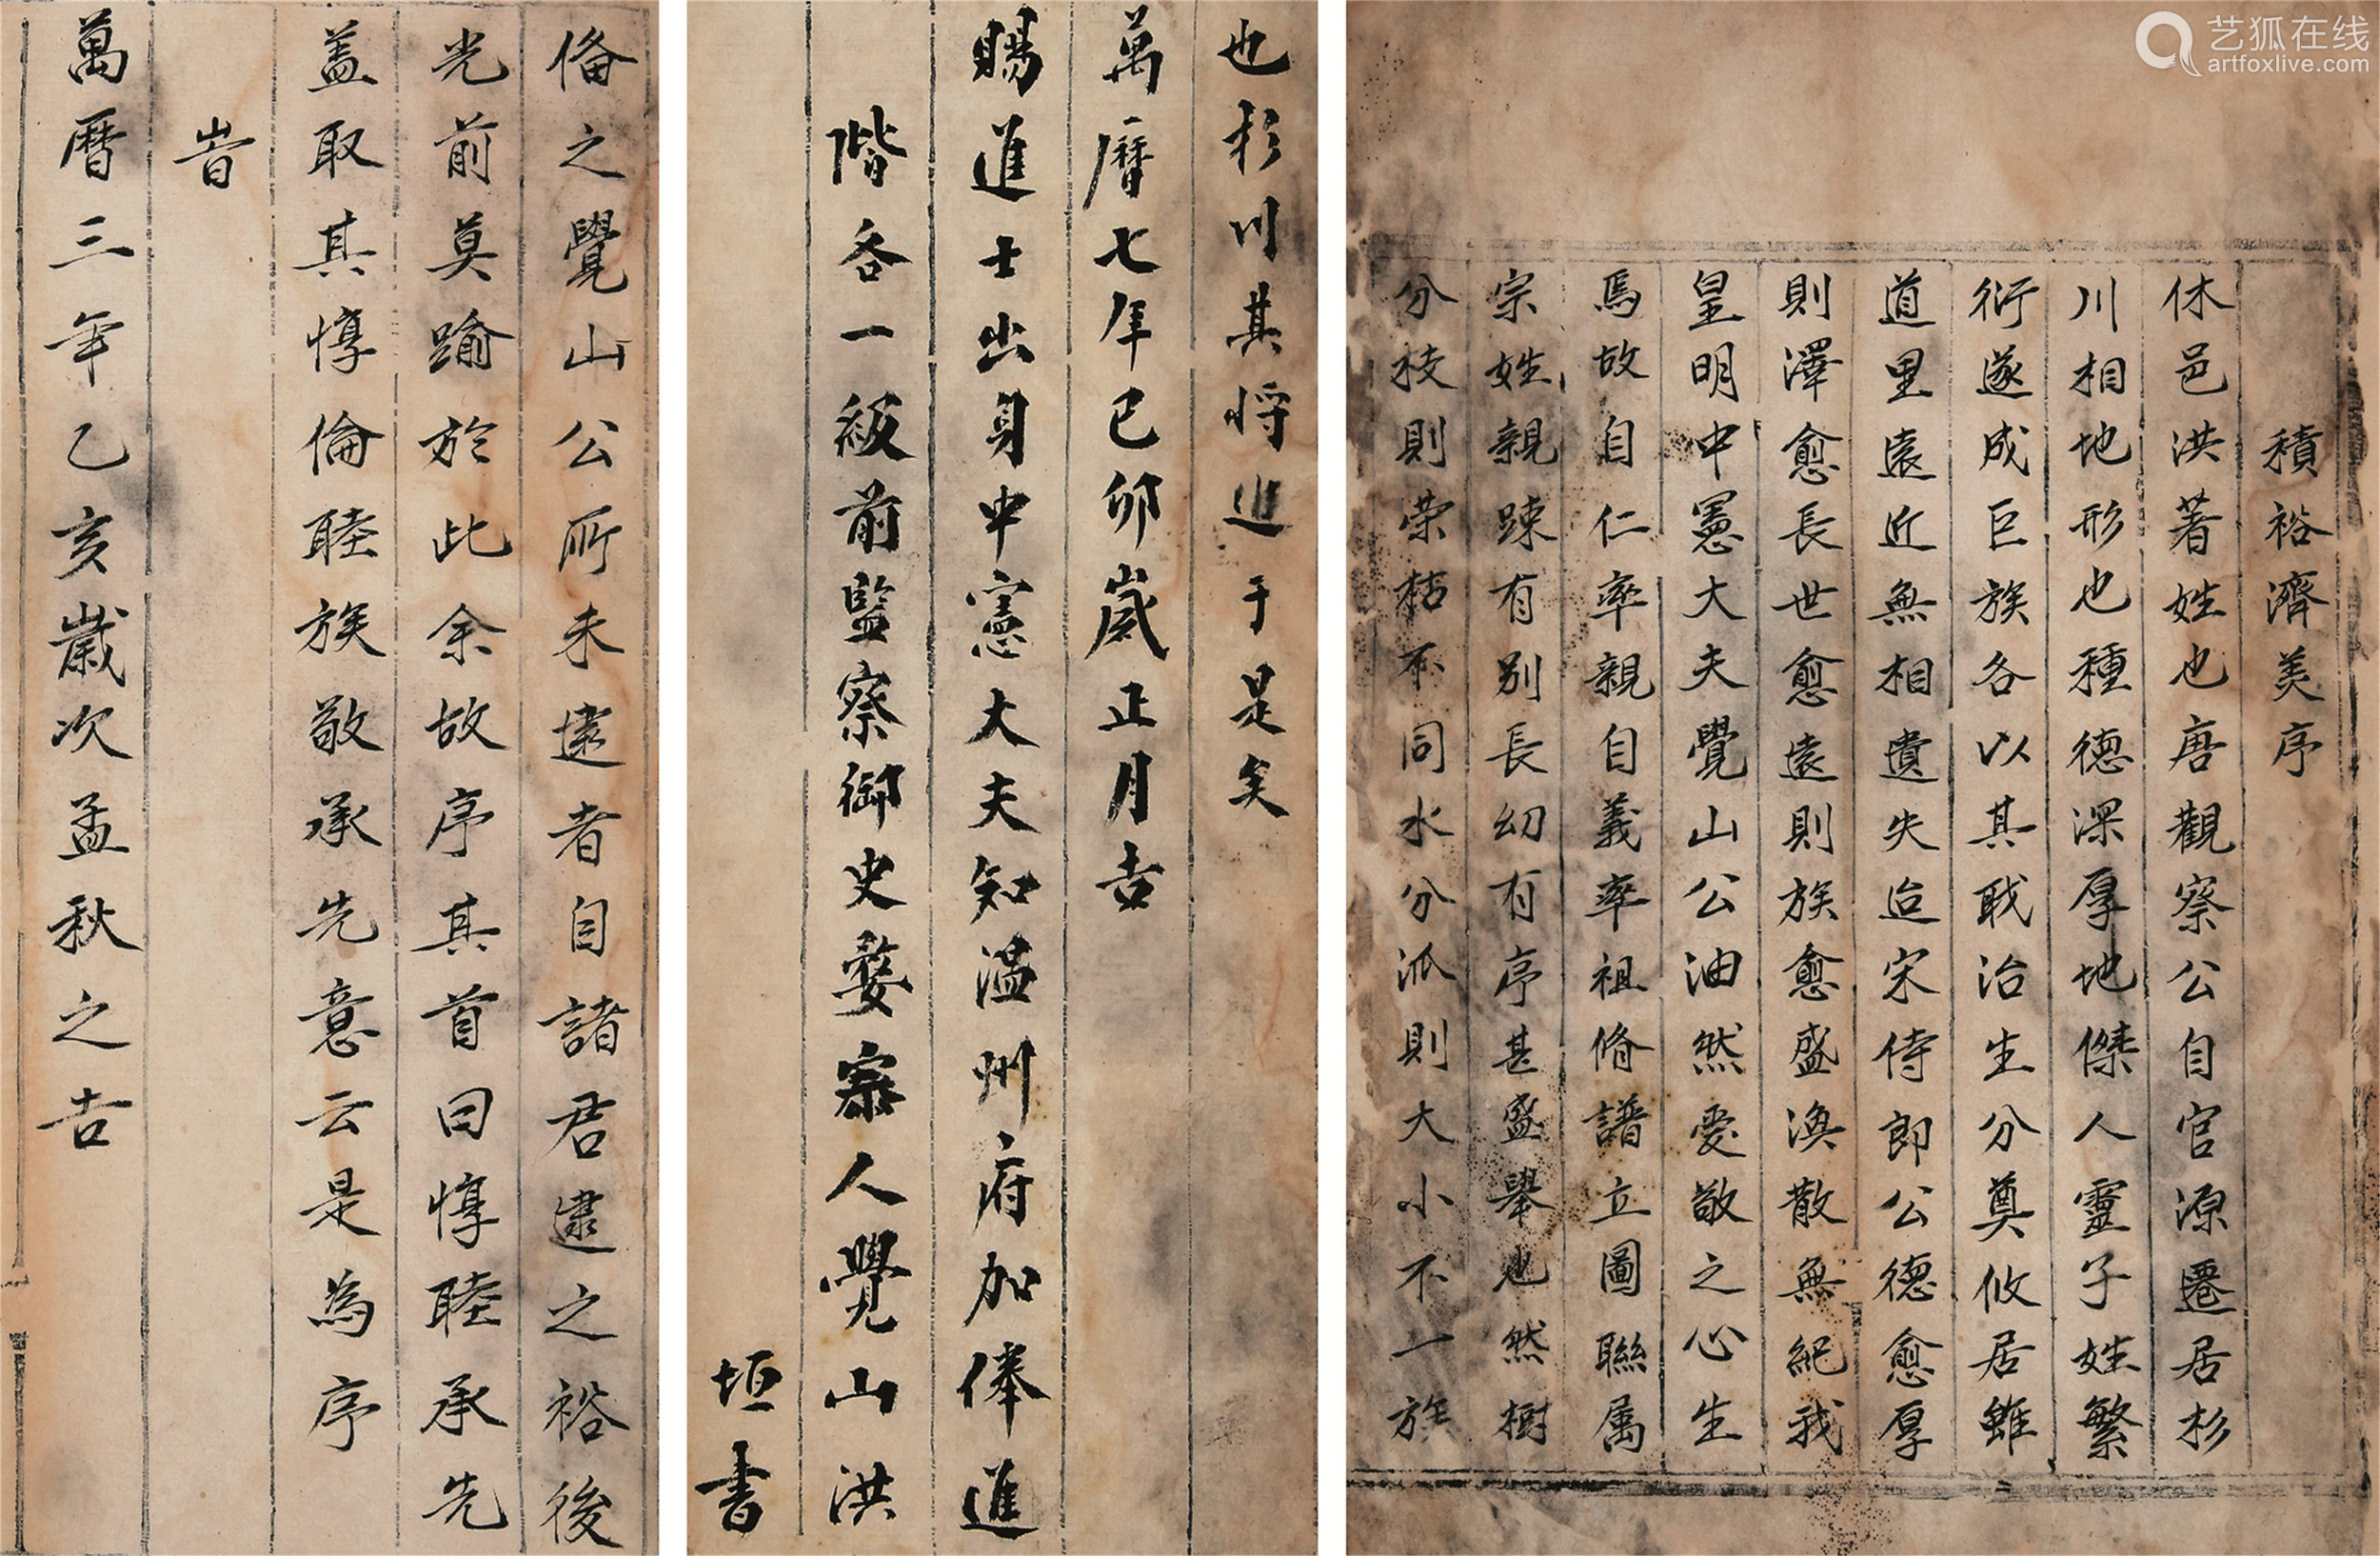 艺狐在线
artfoxlive.com
積裕濟美序
休邑洪著姓也唐觀察公自官源遷居杉
川相地形也種德深厚地傑人靈子姓繁
衍遂成巨族各以其戢治生分奠攸居雖
道里遠近無相遺失迨宋侍郎公德愈厚
則澤愈長世愈遠則族愈盛渙散無紀我
皇明中憲大夫覺山公油然愛敬之心生
焉故自仁率親自義率祖脩譜立圖聯属
宗姓親踈有別長幼有序甚盛舉也然樹
分枝則荣枯不同水分派則大小不一族
也杉川其将進于是矣
萬曆七年已卯歲正月吉
賜進士出身中憲大夫知温州府加俸進
階各一級前監察御史婺寀人覺山洪
垣書
俻之覺山公所未逮者自諸君逮之裕後
光前莫踰於此余故序其首曰惇睦承先
盖取其惇倫睦族敬承先意云是為序
旹
萬曆三年乙亥歲次孟秋之吉